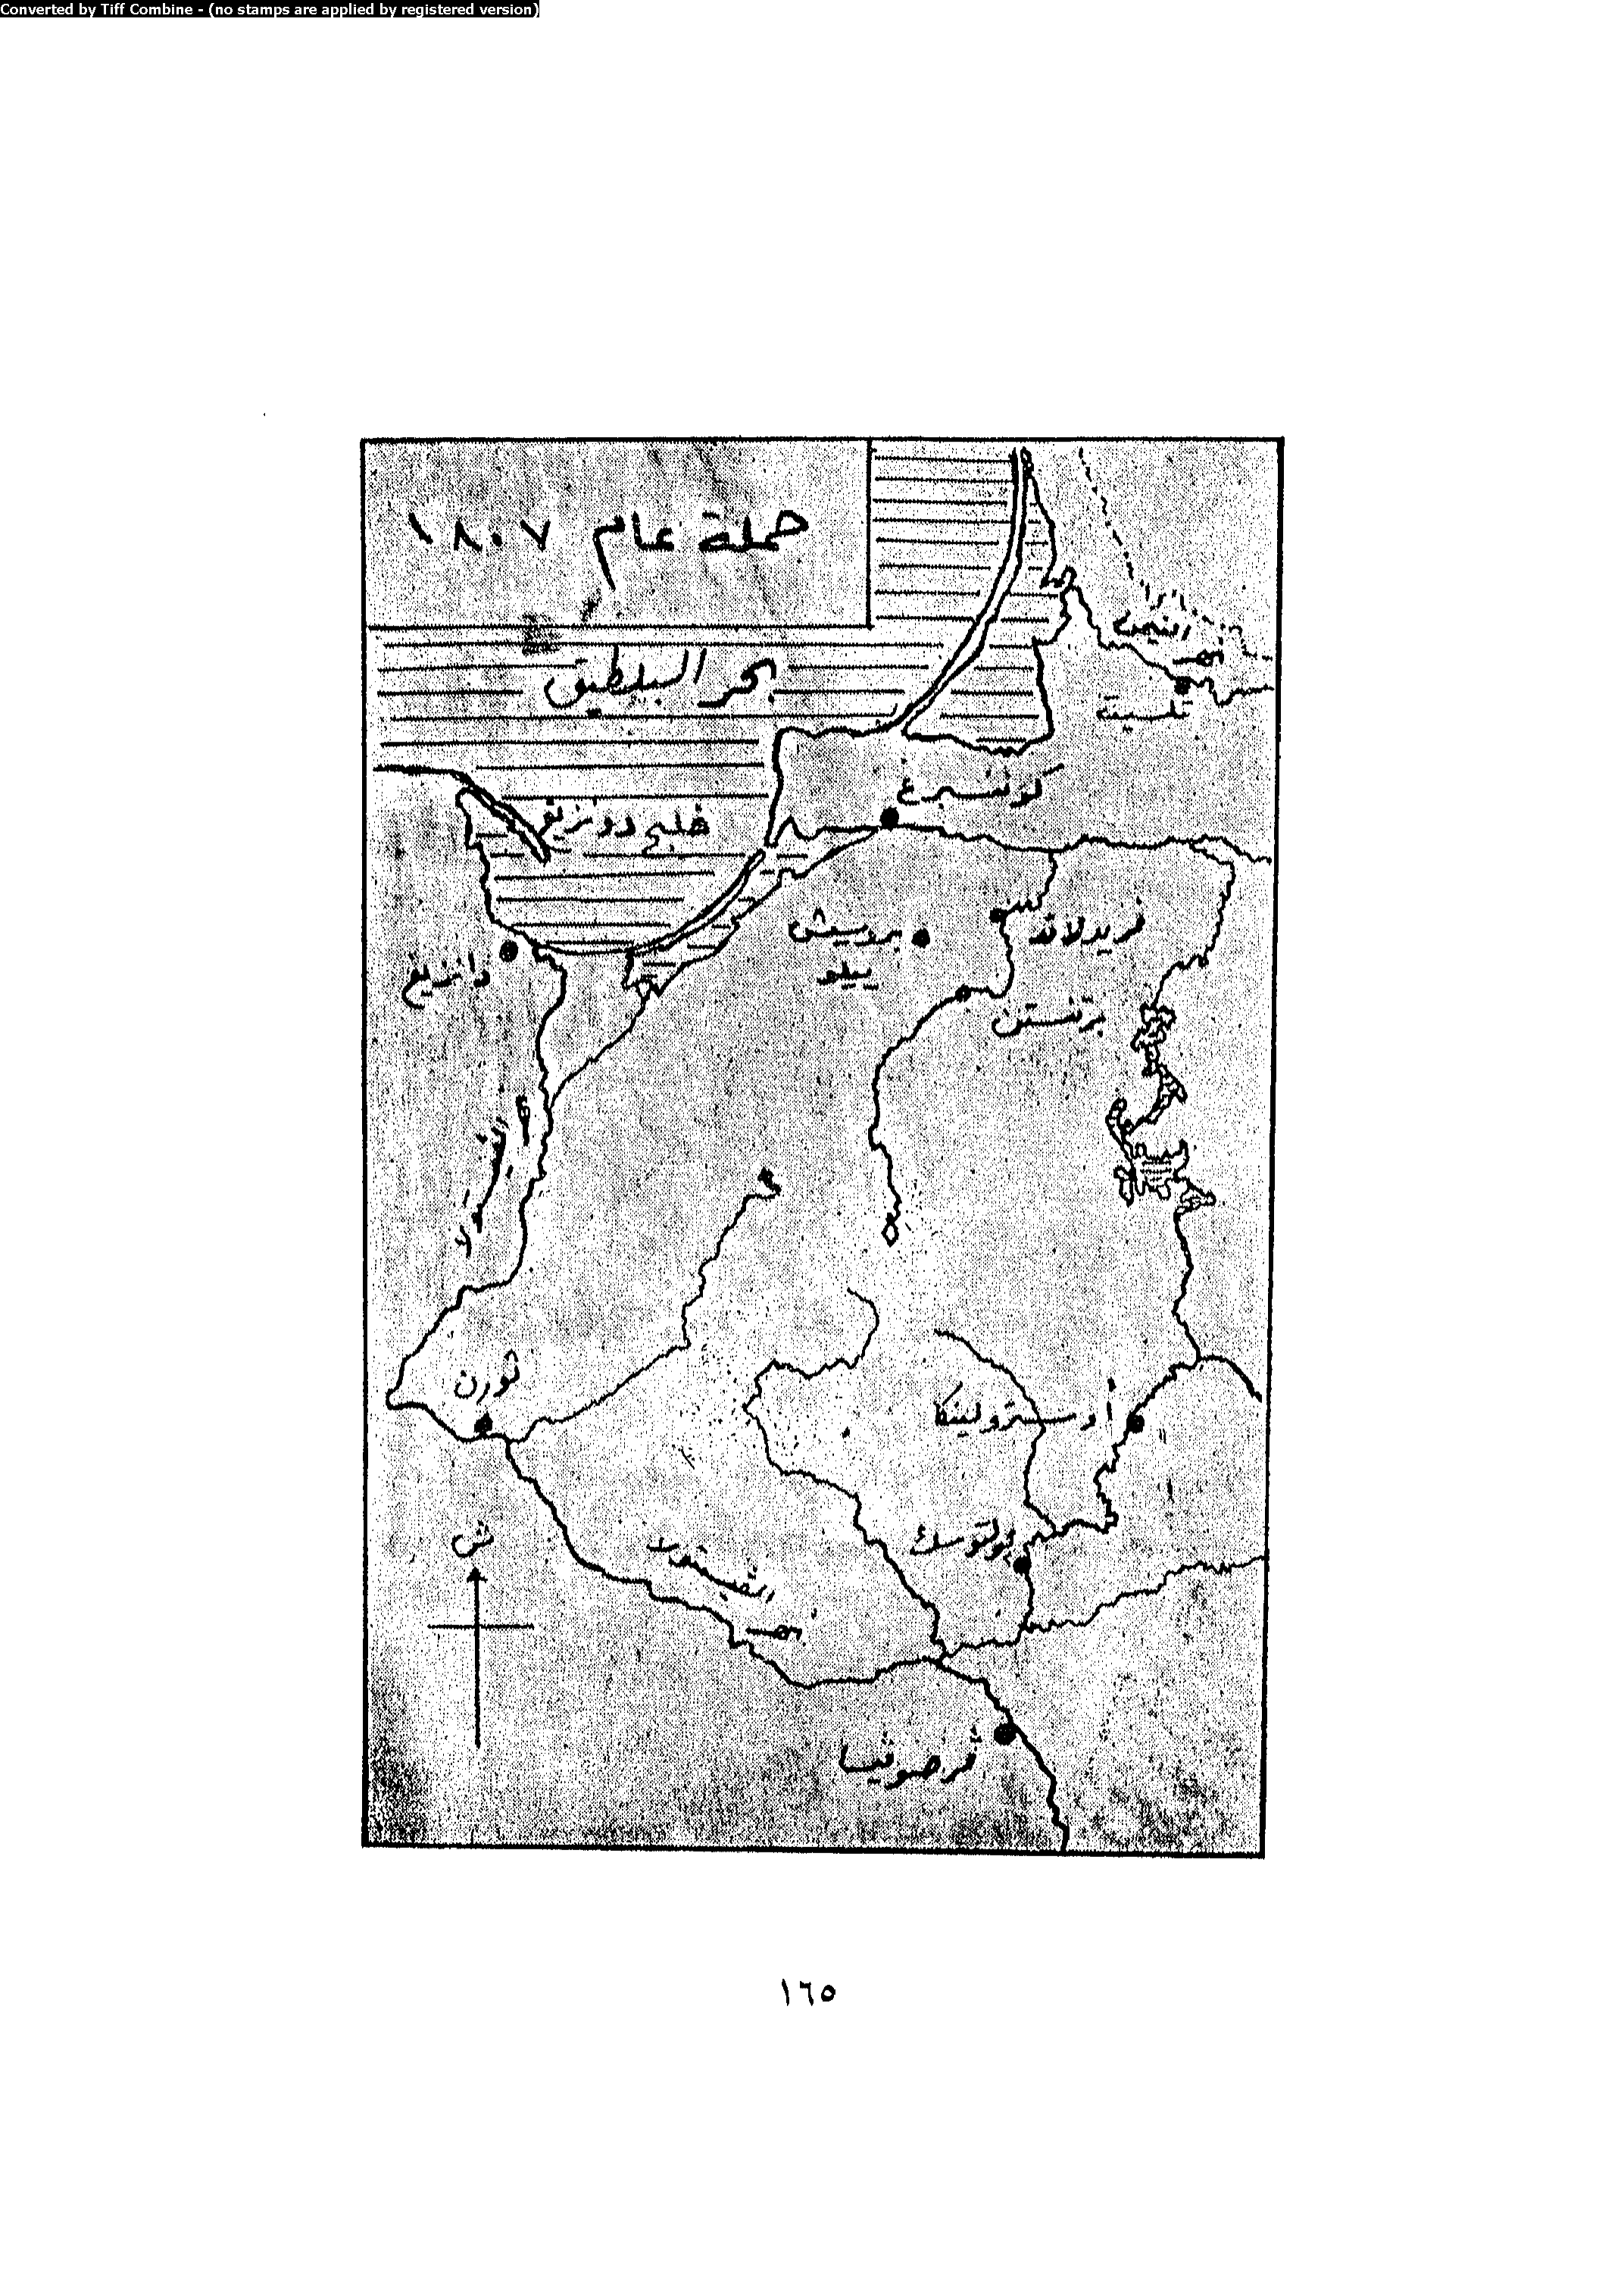 Converted by Tiff Combine - (no stamps are applied by registered version)
حملة عام ١٨٠٧
بحر البلطيق
نهر
تلسيت
كونسبرغ
خليج دونزيغ
فريدلاند
بروسيش
يلو
دانزيغ
برتنستن
ثورن
أوسترولينكا
بولتوسك
ش
نهر
فرصوفيا
١٦٥